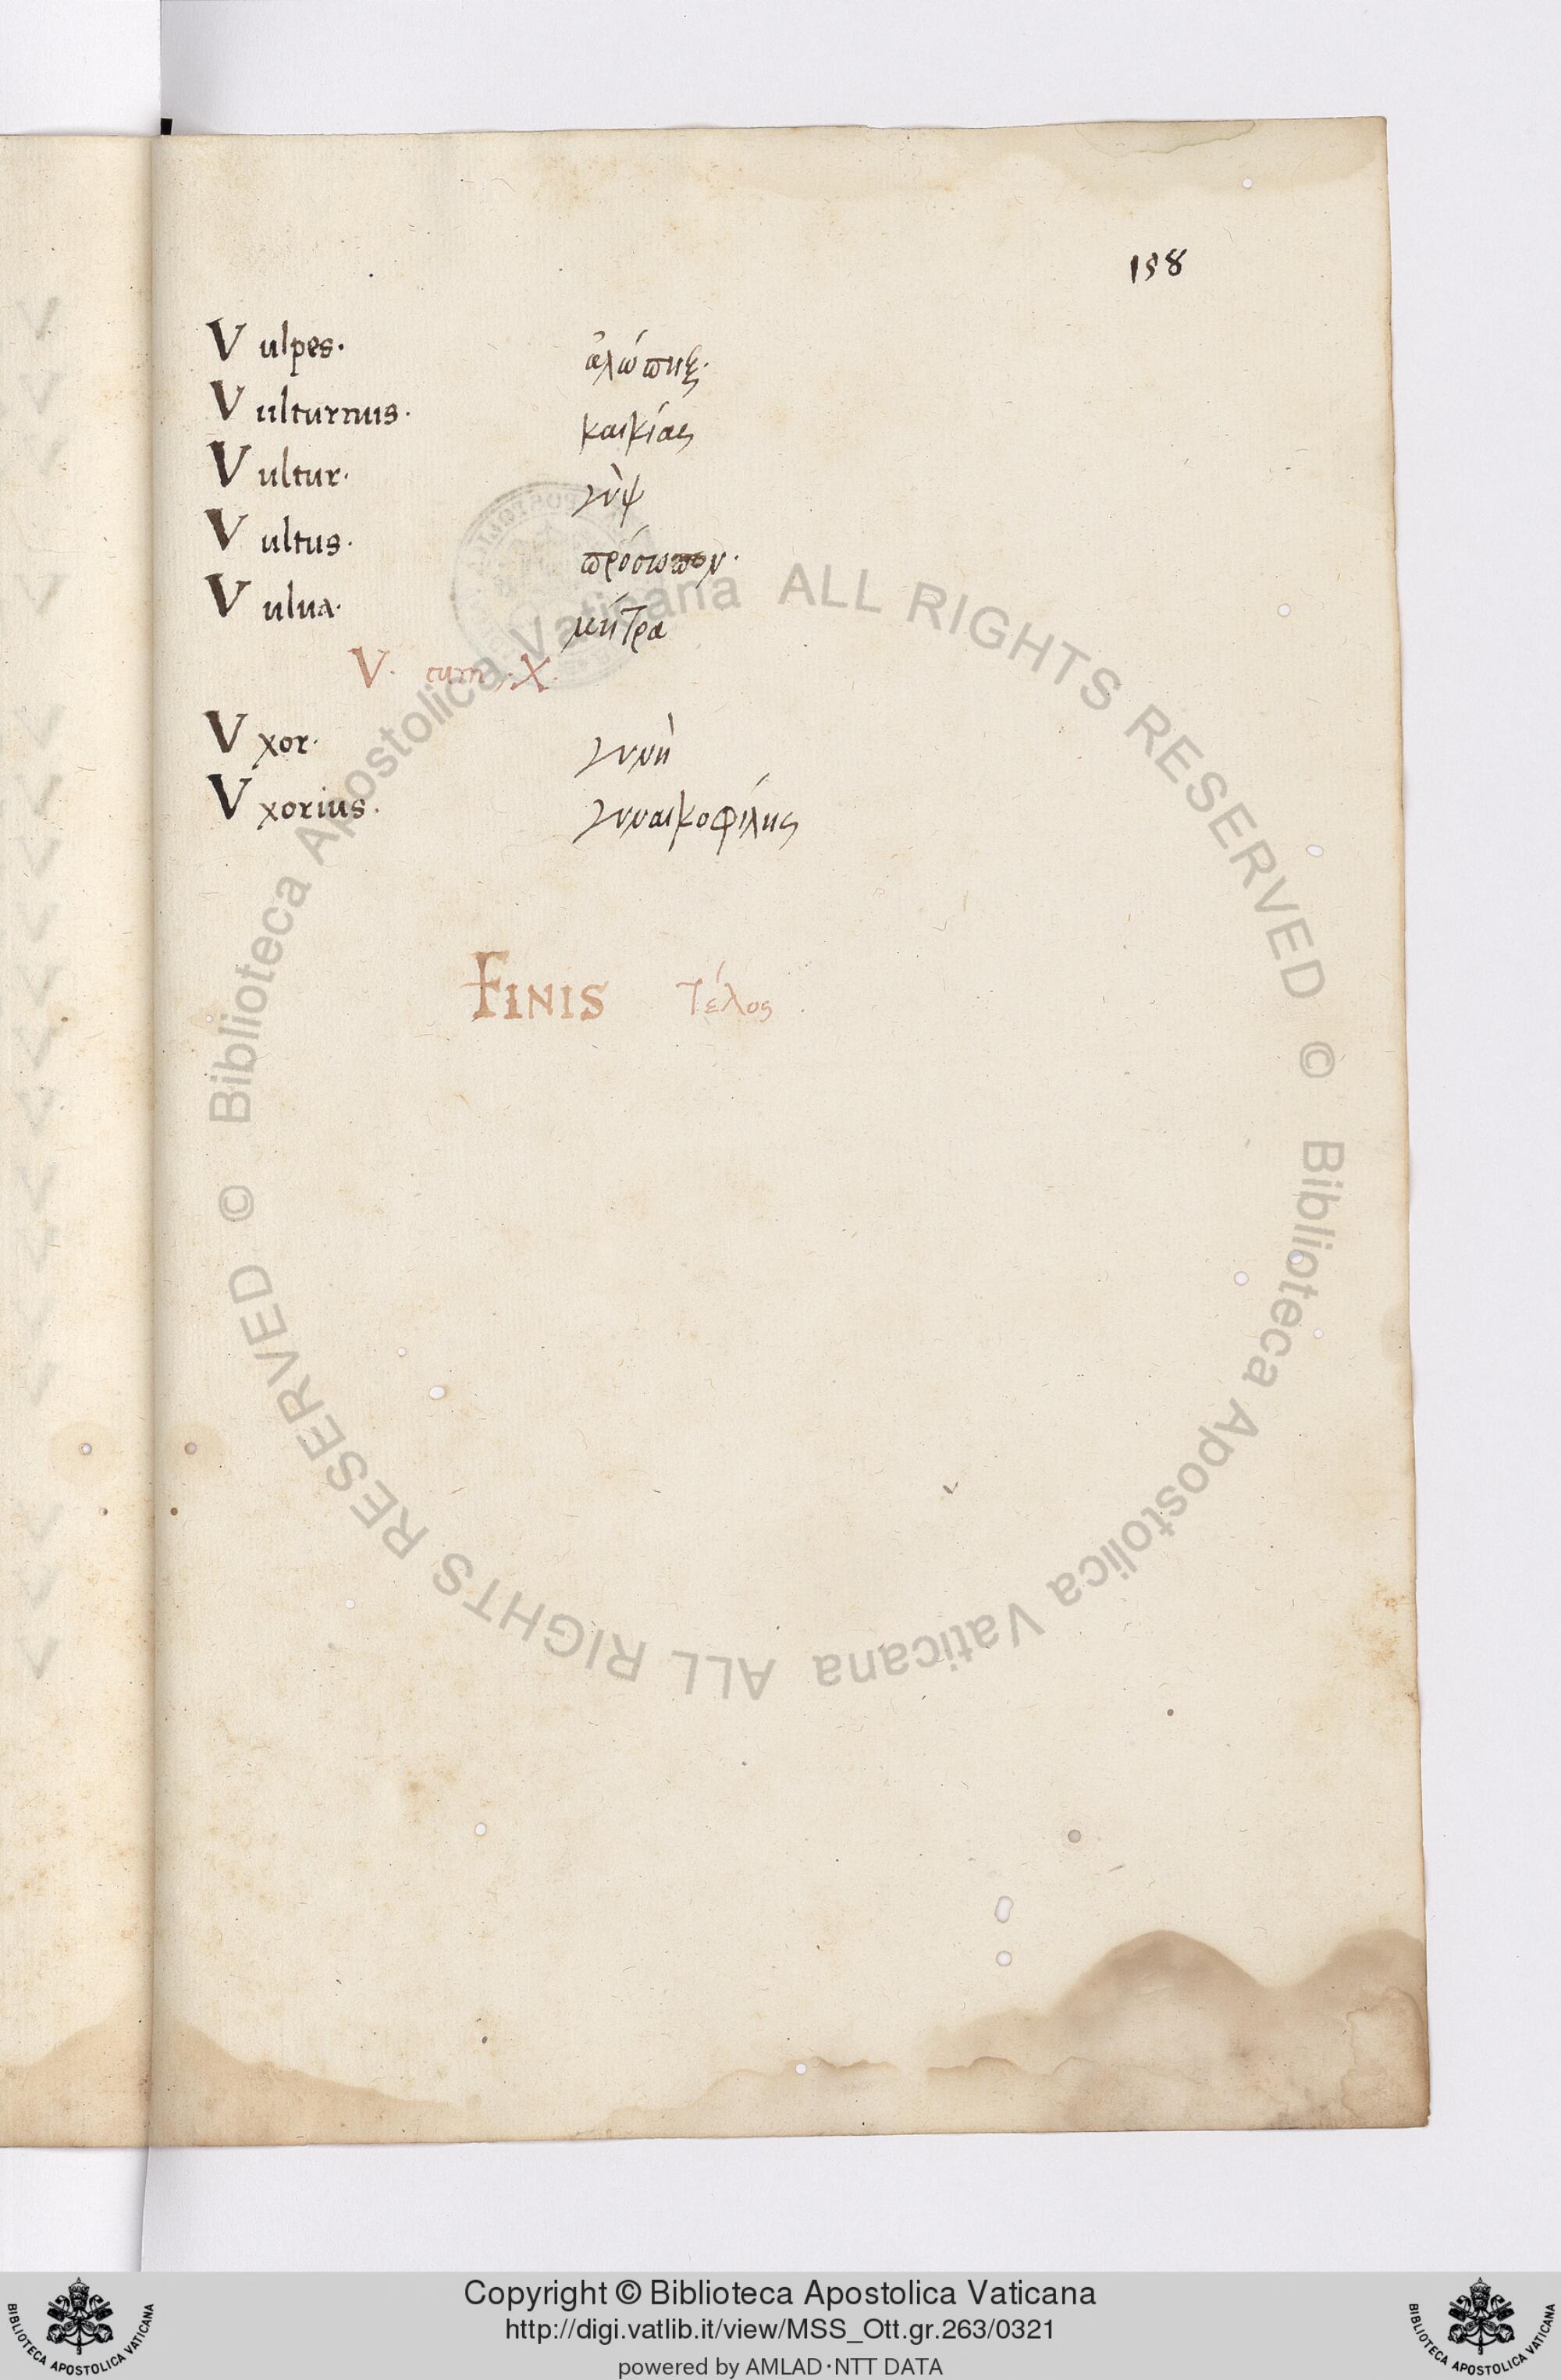 158
Vulpes. ἀλώπηξ.
Vulturnus. καικίας
Vultur. γὺψ
Vultus. πρόσωπον.
Vulua. μήτρα
V. cum. X.
Vxor. γυνὴ
Vxorius. γυναικοφίλης
FINIS τέλος.
© Biblioteca Apostolica Vaticana ALL RIGHTS RESERVED
© Biblioteca Apostolica Vaticana ALL RIGHTS RESERVED
Copyright © Biblioteca Apostolica Vaticana
http://digi.vatlib.it/view/MSS_Ott.gr.263/0321
powered by AMLAD·NTT DATA
BIBLIOTECA APOSTOLICA VATICANA
BIBLIOTECA APOSTOLICA VATICANA